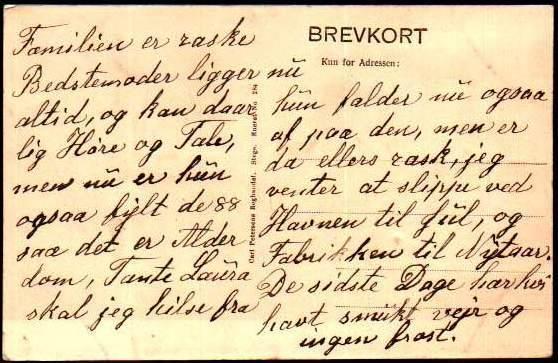 Familien er raske
Bedstemoder ligger nu
altid, og kan daar
lig Höre og Tale,
men nu er hun
ogsaa fÿlt de 88
saa det er Alder
dom, Tante Laura
skal jeg hilse fra
BREVKORT
Kun for Adressen:
hun falder nu ogsaa
af paa den, men er
da ellers rask, jeg
venter at slippe ved
Havnen til Jul, og
Fabrikken til Nÿtaar.
De sidste Dage har vi
havt smukt vejr og
ingen frost.
Carl Petersens Boghandel. Stege. Eneret No. 284